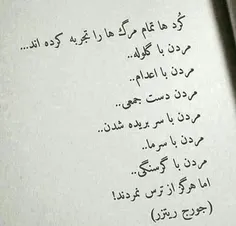 کُرد ها تمام مرگ ها را تجربه کرده اند...
مردن با گلوله..
مردن با اعدام..
مردن دست جمعی..
مردن با سر بریده شدن..
مردن با سرما..
مردن با گرسنگی..
اما هرگز از ترس نمردند!
(جورج ریتزر)